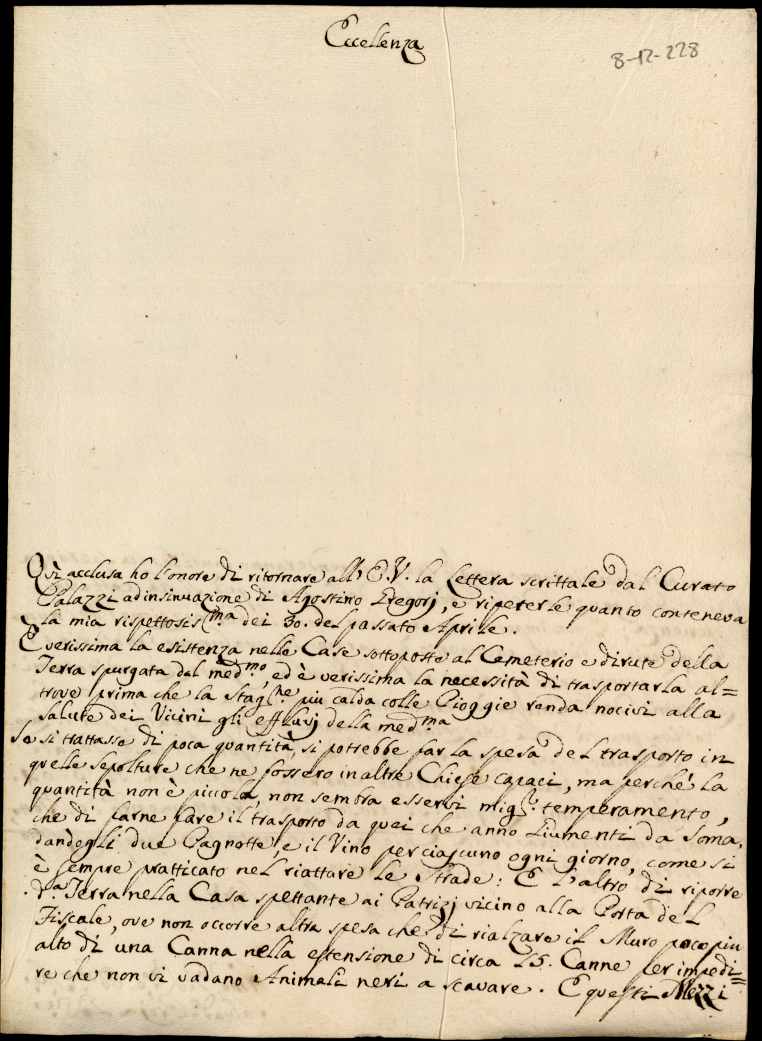 Eccellenza
8-12-228
Qui acclusa ho l'onore di ritornare all' E.V. la Lettera scrittale dal Curato
Palazzi ad insinuazione di Agostino Gregorj, e ripeterle quanto conteneva
la mia rispettosis.ma dei 30. del passato Aprile.
È verissima la esistenza nelle Case sottoposte al Cemeterio e dirute della
Terra spurgata dal med.mo, ed è verissima la necessità di trasportarla al=
trove prima che la Stag.ne più calda colle Pioggie renda nocivi alla
salute dei Vicini gli effluvj della med.ma
Se si trattasse di poca quantità, si potrebbe far la spesa del trasporto in
quelle sepolture che ne fossero in altre Chiese capaci, ma perchè la
quantità non è piccola, non sembra esservi migl. temperamento,
che di farne fare il trasporto da quei che anno Giumenti da Soma,
dandogli due Pagnotte, e il Vino per ciascuno ogni giorno, come si
è sempre pratticato nel riattare le Strade: E l'altro di riporre
d.a Terra nella Casa spettante ai Patrizj vicino alla Porta del
Fiscale, ove non occorre altra spesa che di rialzare il Muro poco più
alto di una Canna nella estensione di circa 15. Canne per impedi=
re che non vi vadano Animali neri a scavare. E questi Mezzi